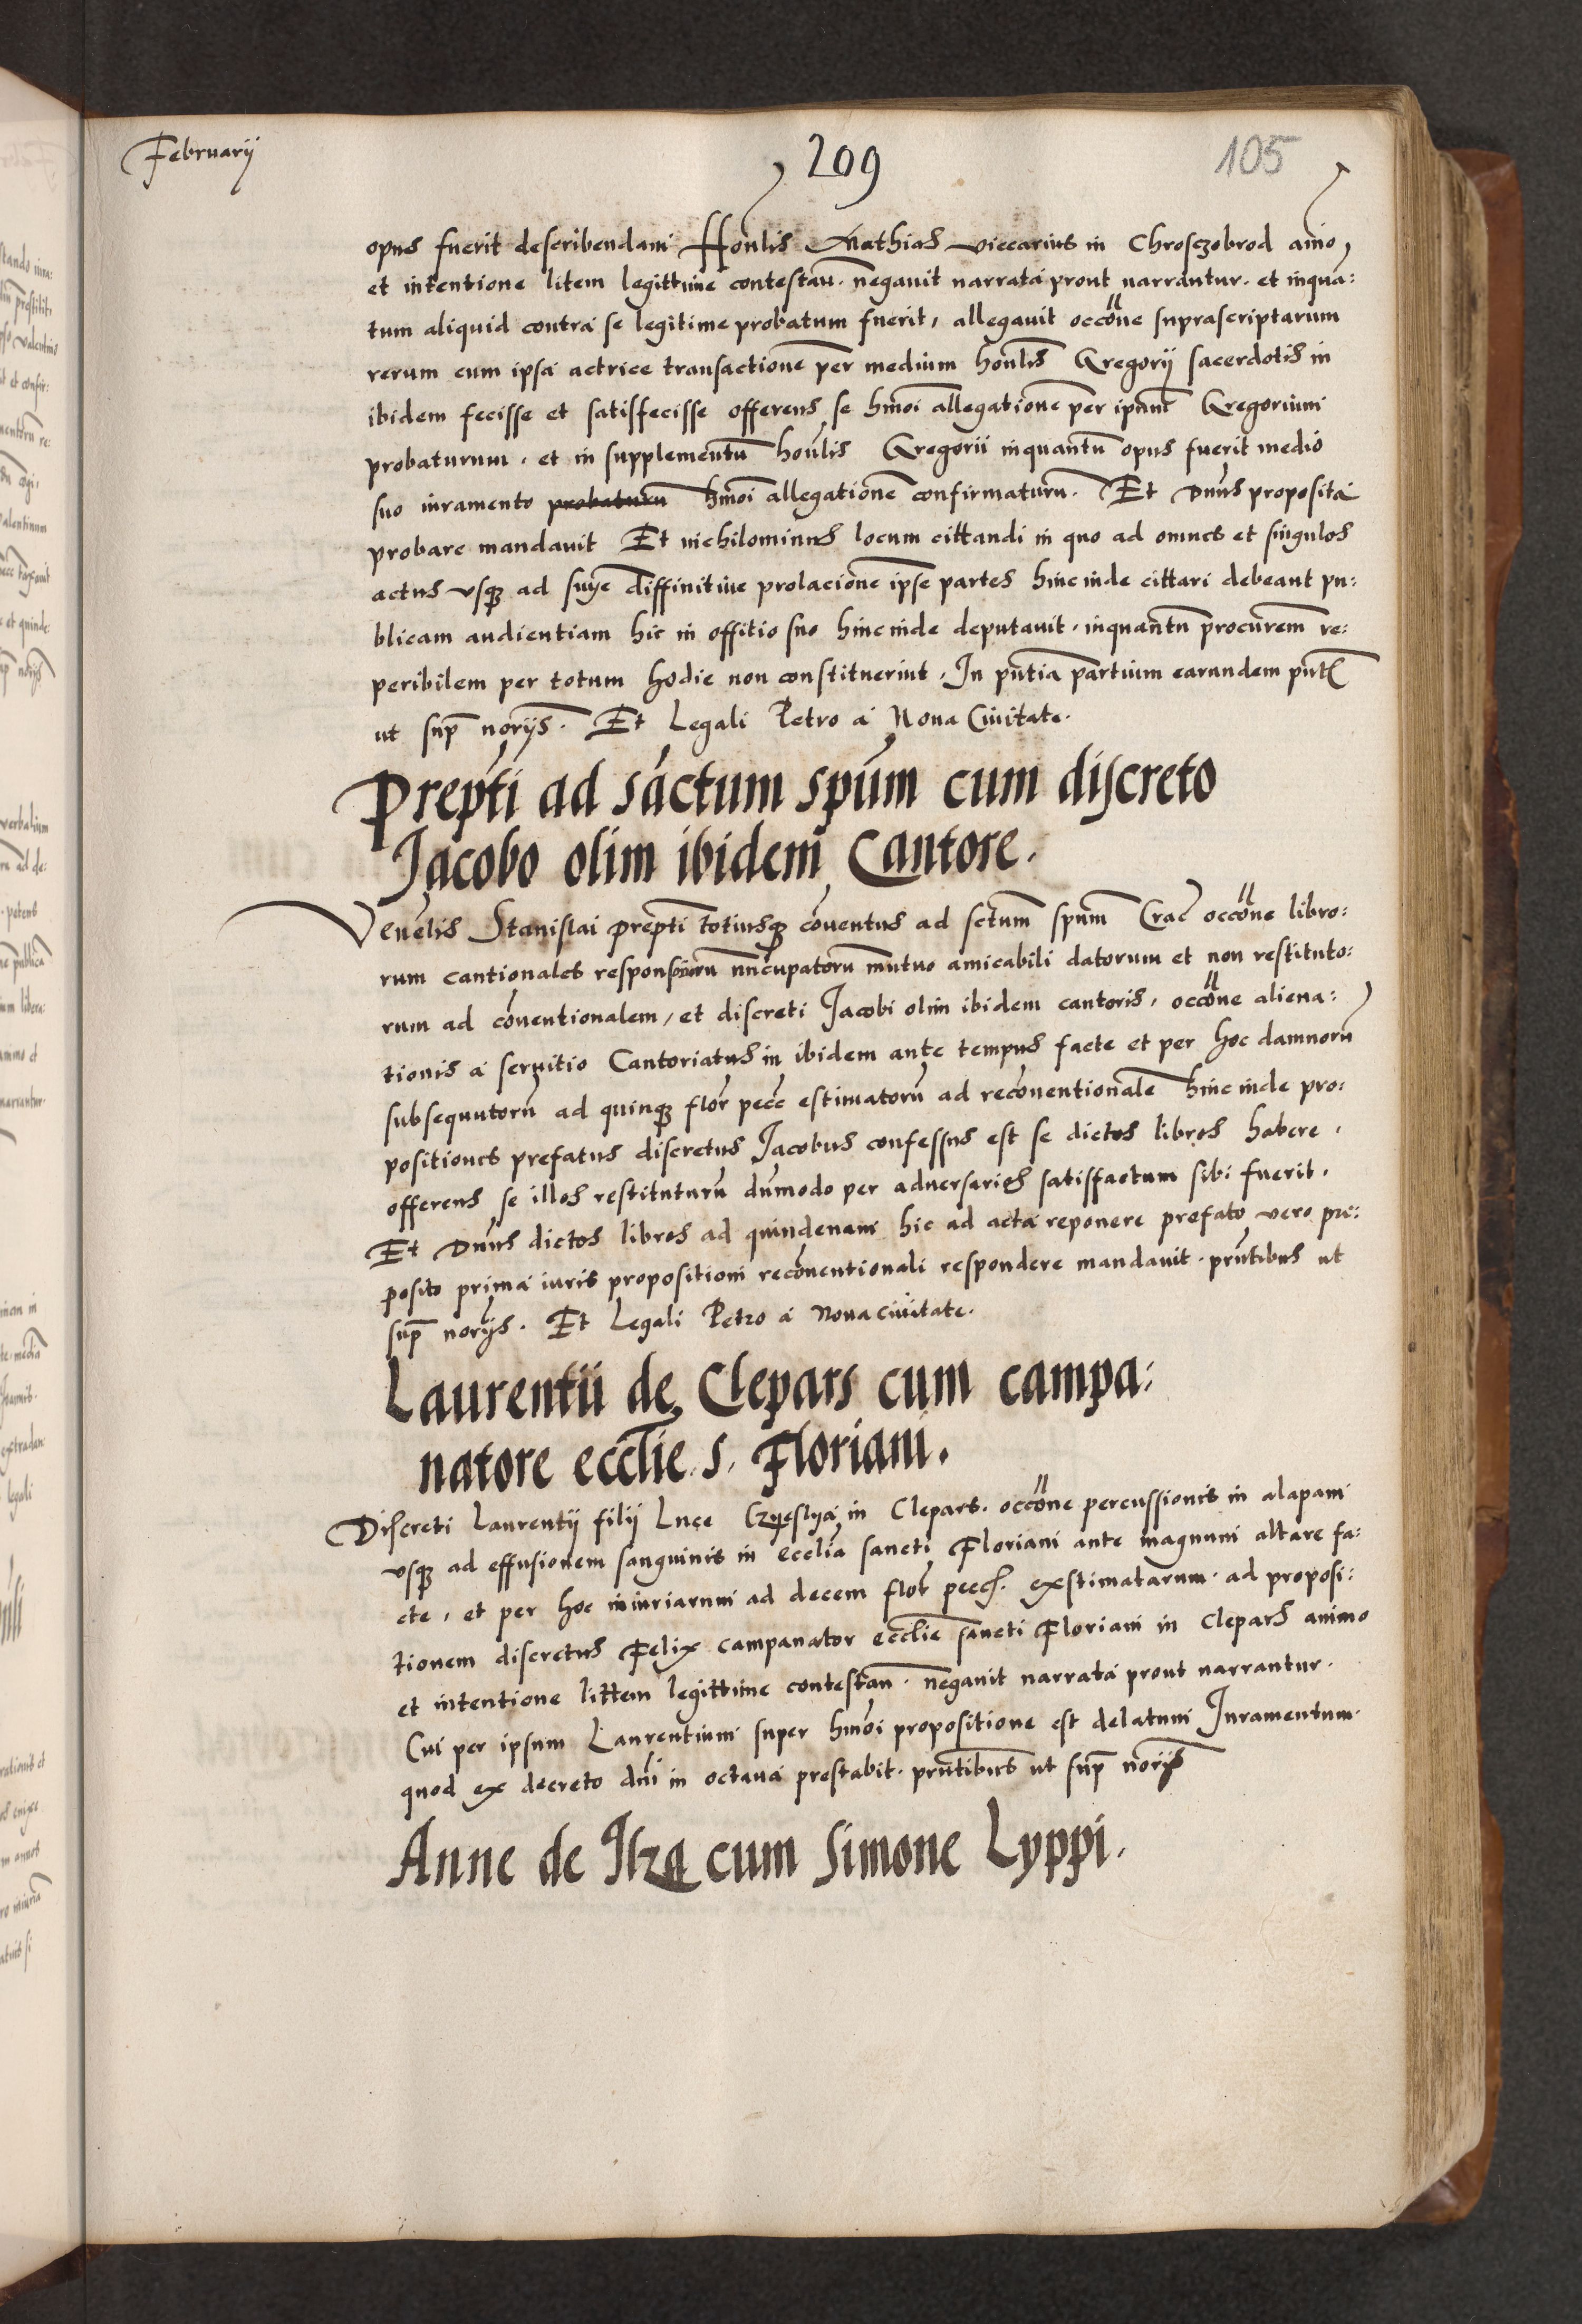 Februarij
209
105
opus fuerit describendam Honlis Mathias viccarius in Chrosczobrod aīo
et intentione litem legittime contestan̄. negauit narrata prout narrantur. et inqua:
tum aliquid contra se legitime probatum fuerit, allegauit occōne suprascriptarum
rerum cum ipsa actrice transactionē per medium honlis Gregorij sacerdotis in
ibidem fecisse et satisfecisse offerens se hmōi allegationē per ipūm Gregorium
probaturum. et in supplementū honlis Gregorii inquantū opus fuerit medio
suo iuramento probaturū hmōi allegationē confirmaturū. Et Dnūs proposita
probare mandauit Et nichilominus locum cittandi in quo ad omnes et singulos
actus vsq; ad snīe diffinitiue prolacionē ipse partes hincinde cittari debeant pu:
blicam audientiam hic in offitio suo hincinde deputauit. inquantū procurēm re:
peribilem per totum hodie non constituerint. In pn̄tia partium earundem pn̄t
ut sup̄ norijs. Et Legali Petro a Noua Ciuitate.
Prepti ad sāctum spūm cum discreto
Jacobo olim ibidem Cantore.
Venēlis Stanislai prepti totiusq; cōuentus ad sctum spūm Crac̄ occōne libro:
rum cantionales nūcupatorū mutuo amicabili datorum et non restituto:
rum ad cōuentionalem, et discreti Jacobi olim ibidem cantoris, occōne aliena:
tionis a seruitio Cantoriatus in ibidem ante tempus facte et per hoc damnorū
subsequutorū ad quinq; flor̄ pecc̄ estimatorū ad recōuentionalē hincinde pro:
positiones prefatus discretus Jacobus confessus est se dictos libros habere,
offerens se illos restituturū dūmodo per aduersarios satisfactum sibi fuerit.
Et Dnūs dictos libros ad quindenam hic ad acta reponere prefato vero pre:
posito prima iuris propositioni recōuentionali respondere mandauit. prn̄tibus ut
sup̄ norijs. Et Legali Petro a Noua ciuitate.
Laurentii de Clepars cum campa:
natore ecclīe s. Floriani.
Discreti Laurentij filij Luce in Clepars. occōne percussionis in alapam
vsq; ad effusionem sanguinis in ecclīa sancti Floriani ante magnum altare fa:
cte, et per hoc iniuriarum ad decem flor̄ pecc̄. exstimatarum. ad proposi:
tionem discretus Felix campanator ecclīe sancti Floriani in Clepars animo
et intentione littem legittime contestan̄. negauit narrata prout narrantur.
Cui per ipsum Laurentium super hmōi propositione est delatum Iuramentum.
quod ex decreto dnī in octaua prestabit. prn̄tibus ut sup̄ norijs
Anne de Ilza cum Simone Lyppi.